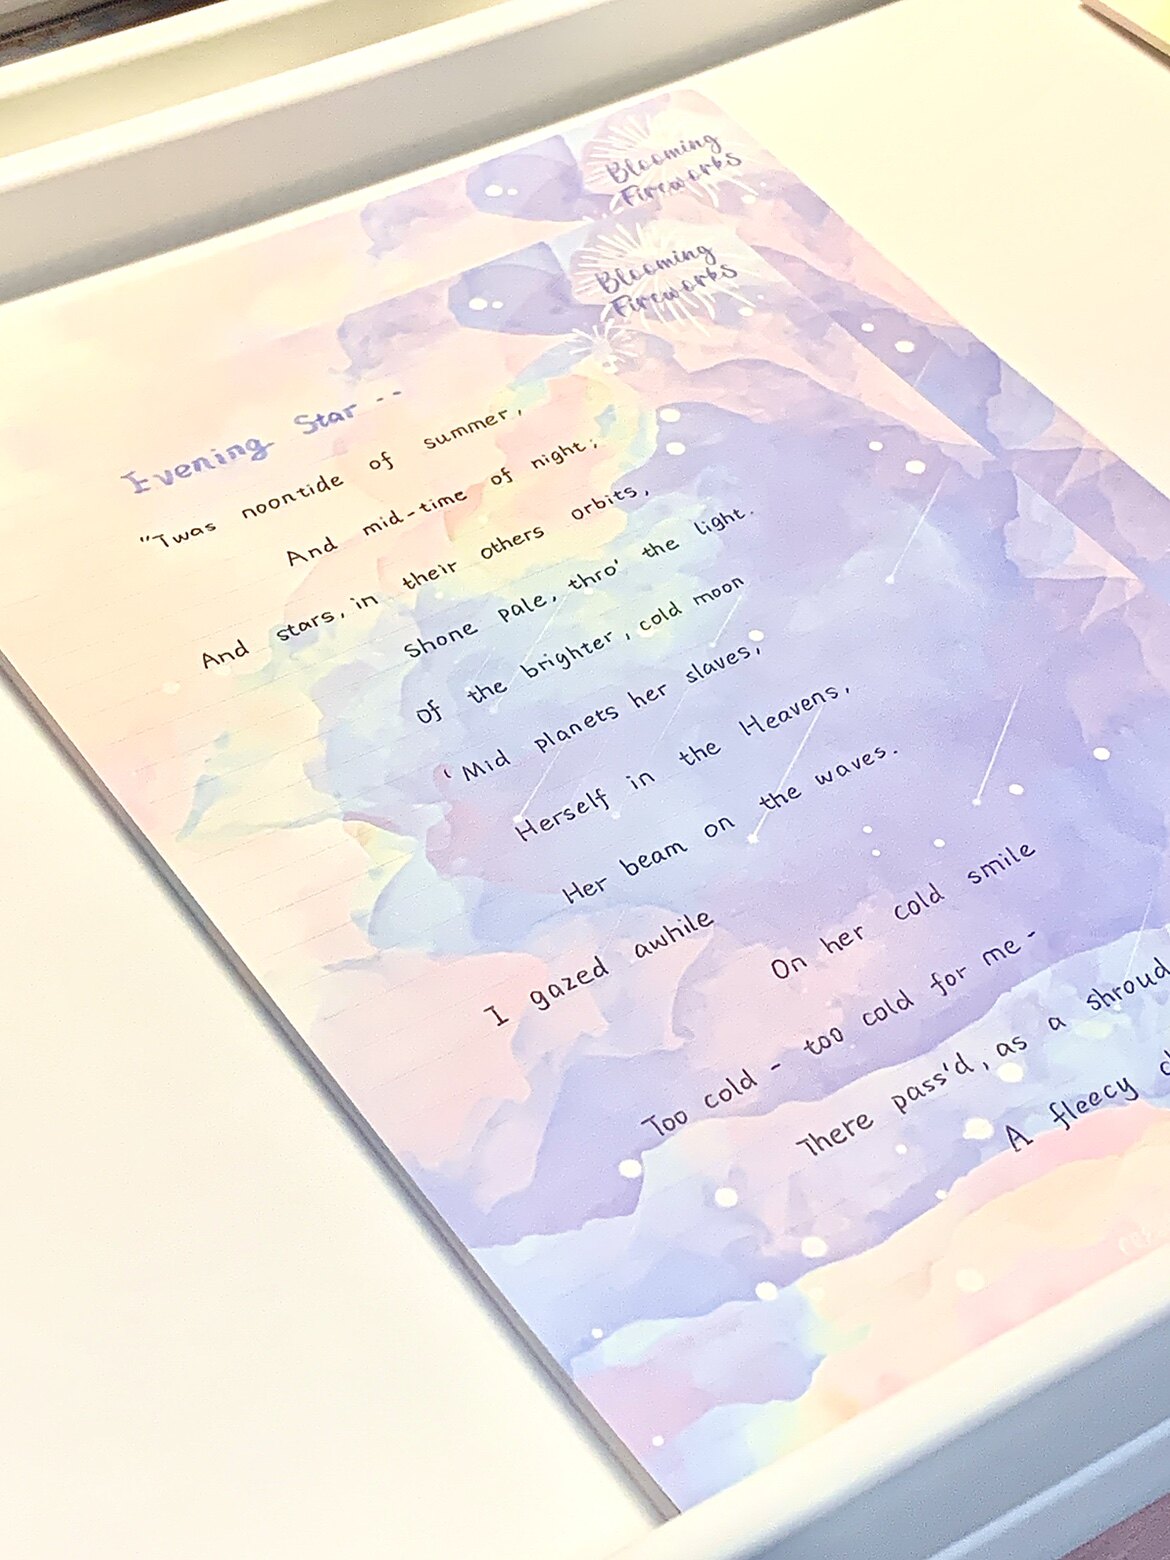 Blooming
Fireworks
Blooming
Fireworks
Evening Star --
"Twas noontide of summer,
And mid-time of night;
And stars, in their others orbits,
Shone pale, thro' the light.
Of the brighter, cold moon
'Mid planets her slaves,
Herself in the Heavens,
Her beam on the waves.
I gazed awhile
On her cold smile
Too cold - too cold for me -
There pass'd, as a shroud
A fleecy